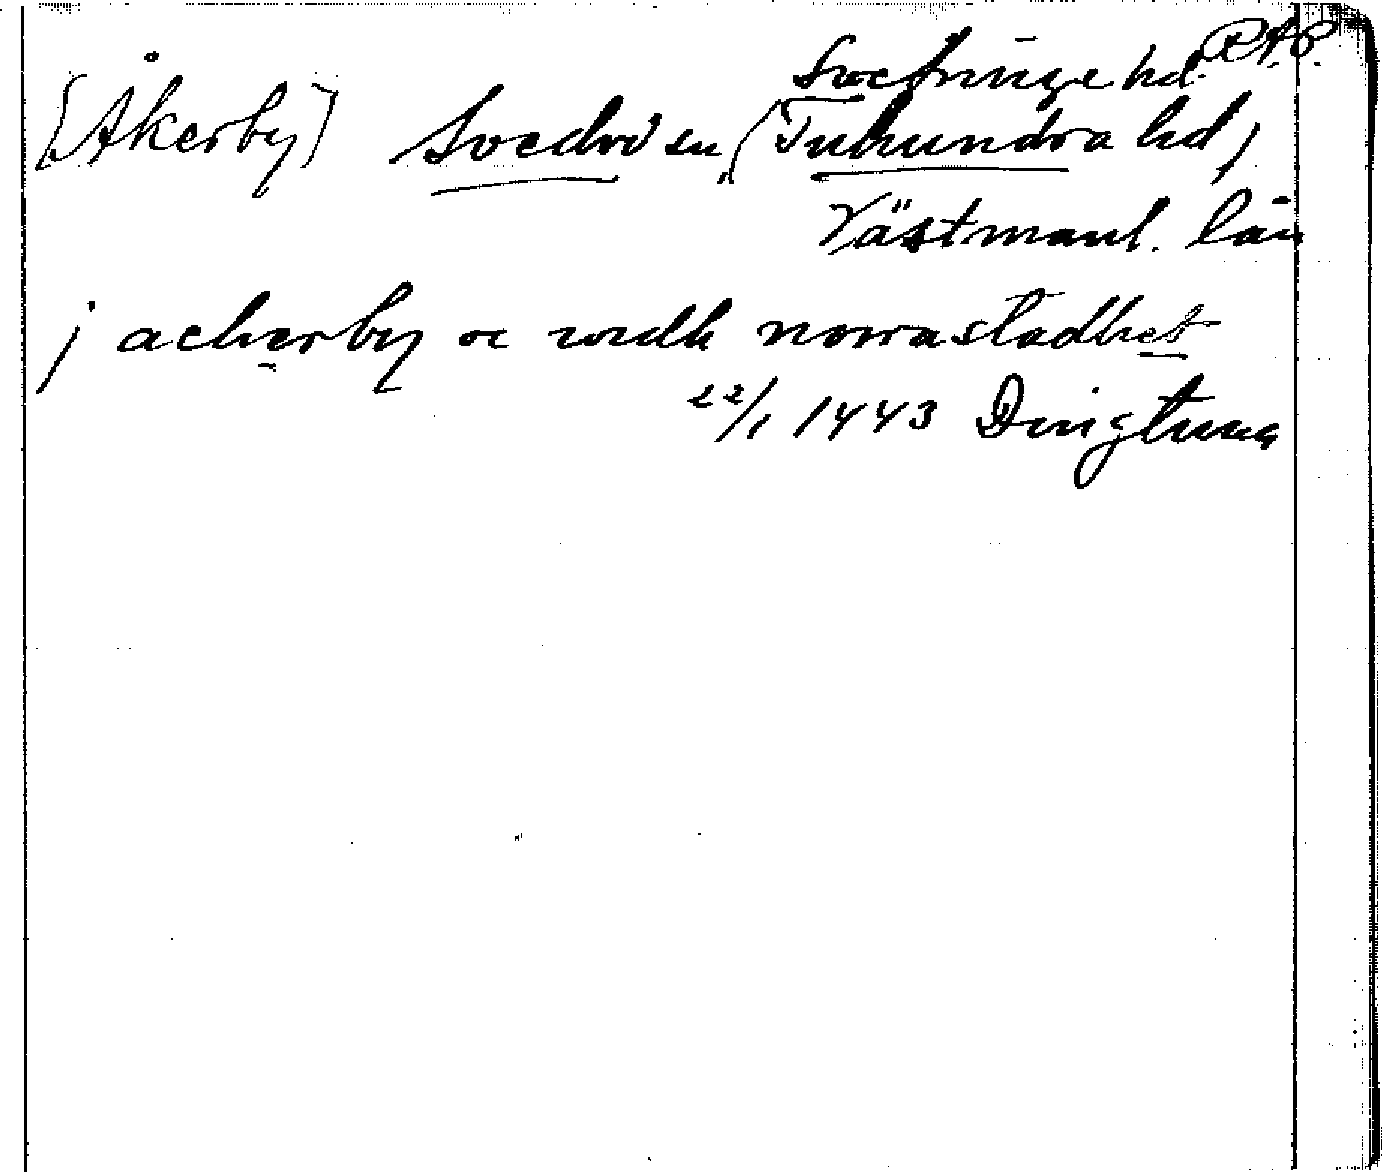 Snefringe hd. R.A.P.
[Åkerby] Svedvi sn, (Tuhundra hd)
Västmanl. län
j acherby oc widh norrastadhet
22/1 1443 Dingtuna